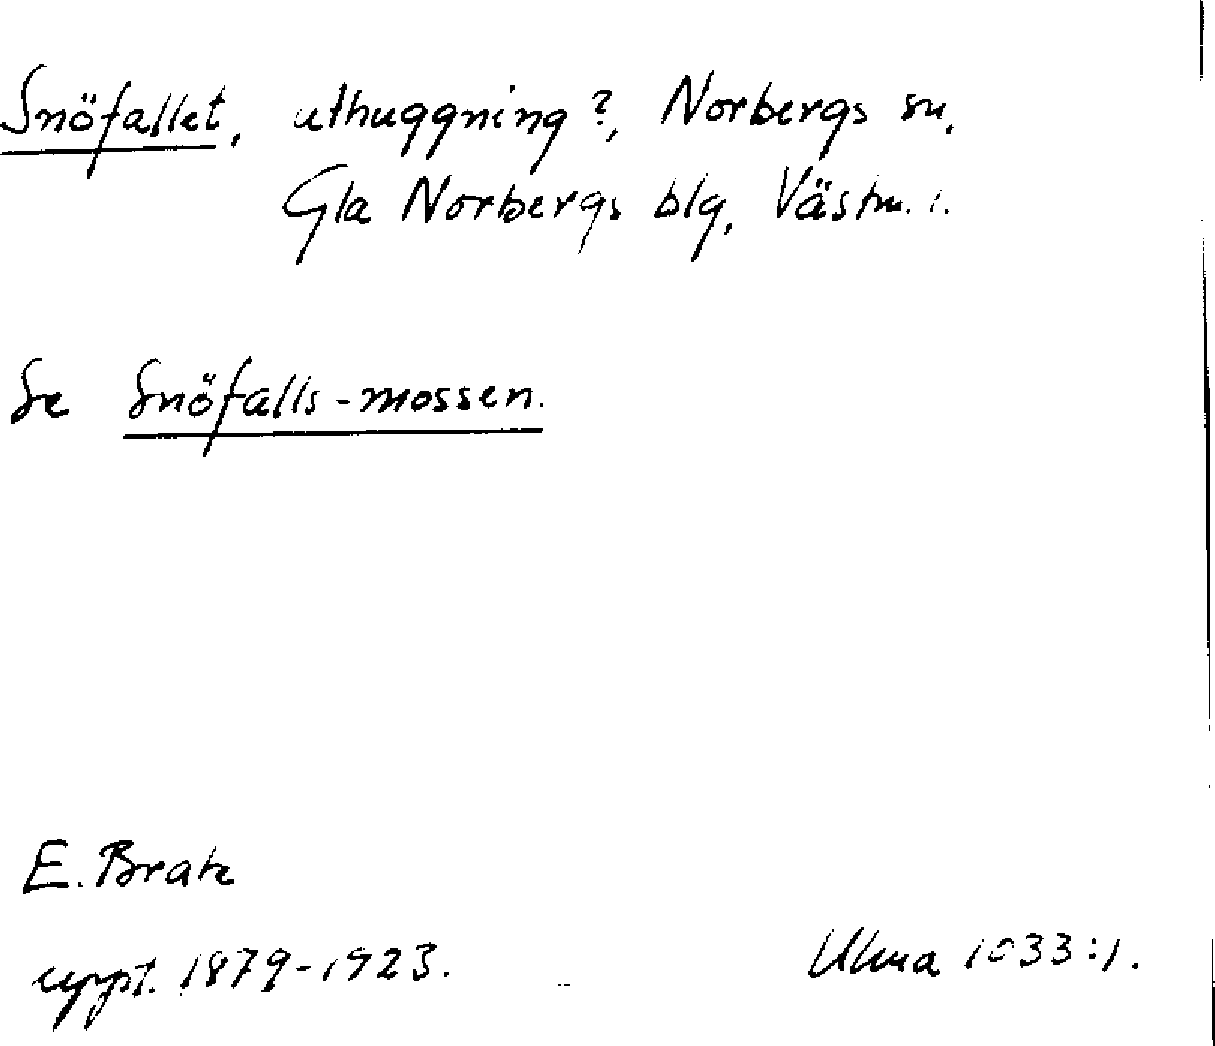 Snöfallet, uthuggning?, Norbergs sn,
Gla Norbergs blg, Västm. l.
Se Snöfalls-mossen.
E. Brate
uppt. 1879-1923.
Ulma 1033:1.